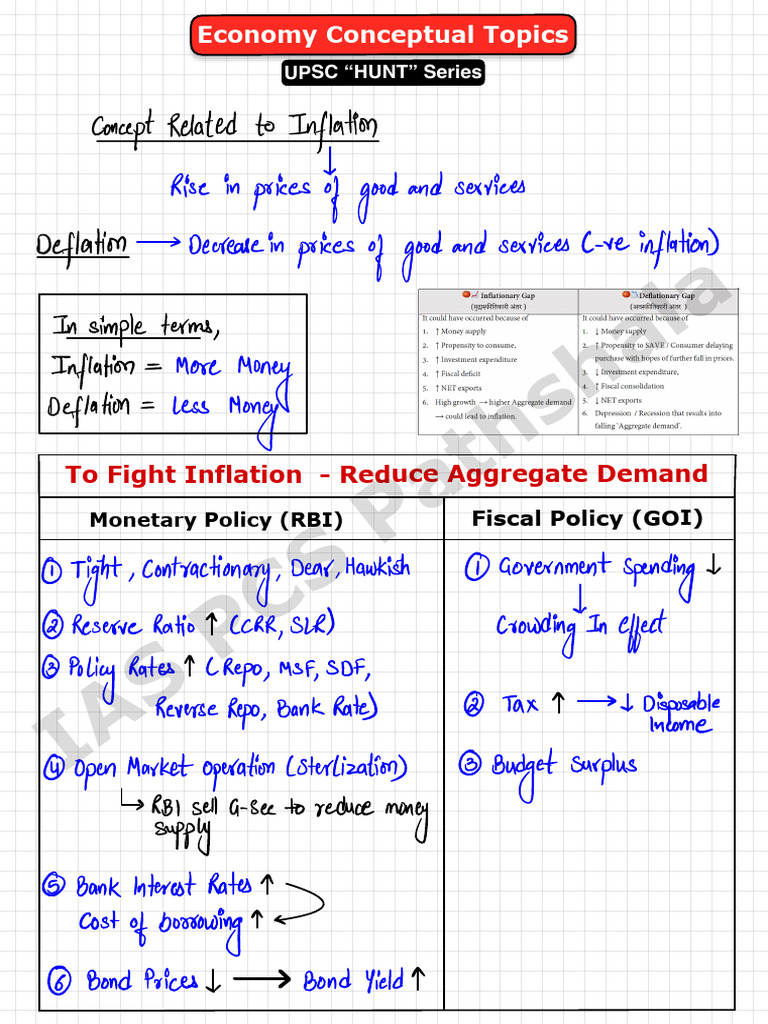 Economy Conceptual Topics
UPSC “HUNT” Series
Concept Related to Inflation
↓
Rise in prices of good and services
Deflation → Decrease in prices of good and services (-ve inflation)
In simple terms,
Inflation = More Money
Deflation = Less Money
Inflationary Gap
(मुद्रास्फीतिकारी अंतर )
It could have occurred because of
1. ↑ Money supply
2. ↑ Propensity to consume,
3. ↑ Investment expenditure
4. ↑ Fiscal deficit
5. ↑ NET exports
6. High growth → higher Aggregate demand
→ could lead to inflation.
Deflationary Gap
(अवस्फीतिकारी अंतर )
It could have occurred because of
1. ↓ Money supply
2. ↑ Propensity to SAVE / Consumer delaying
purchase with hopes of further fall in prices.
3. ↓ Investment expenditure,
4. ↑ Fiscal consolidation
5. ↓ NET exports
6. Depression / Recession that results into
falling ‘Aggregate demand’.
To Fight Inflation - Reduce Aggregate Demand
Monetary Policy (RBI)
① Tight, Contractionary, Dear, Hawkish
② Reserve Ratio ↑ (CRR, SLR)
③ Policy Rates ↑ (Repo, MSF, SDF,
Reverse Repo, Bank Rate)
④ Open Market Operation (Sterlization)
↳ RBI sell G-Sec to reduce money
supply
⑤ Bank Interest Rates ↑
Cost of borrowing ↑
⑥ Bond Prices ↓ → Bond Yield ↑
Fiscal Policy (GOI)
① Government Spending ↓
↓
Crowding In effect
② Tax ↑ → ↓ Disposable
Income
③ Budget Surplus
IAS PCS Pathshala